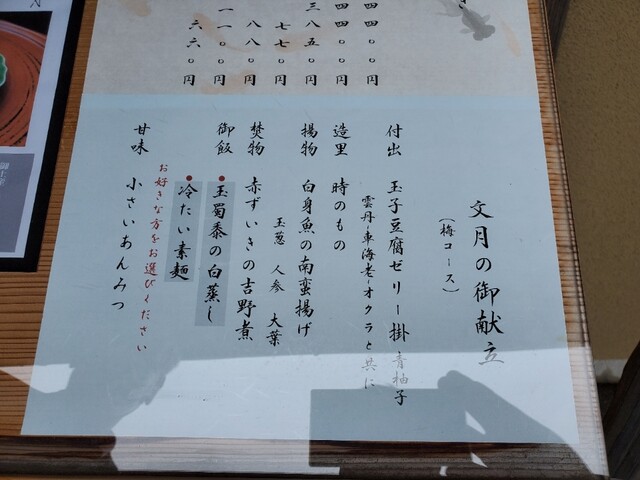 四四〇〇円
四四〇〇円
三八五〇円
七七〇円
八八〇円
一一〇〇円
六六〇円
文月の御献立
(梅コース)
付出 玉子豆腐ゼリー掛 青柚子
雲丹・車海老・オクラと共に
造里 時のもの
揚物 白身魚の南蛮揚げ
玉葱 人参 大葉
焚物 赤ずいきの吉野煮
御飯 ●玉蜀黍の白蒸し
●冷たい素麺
お好きな方をお選びください
甘味 小さいあんみつ